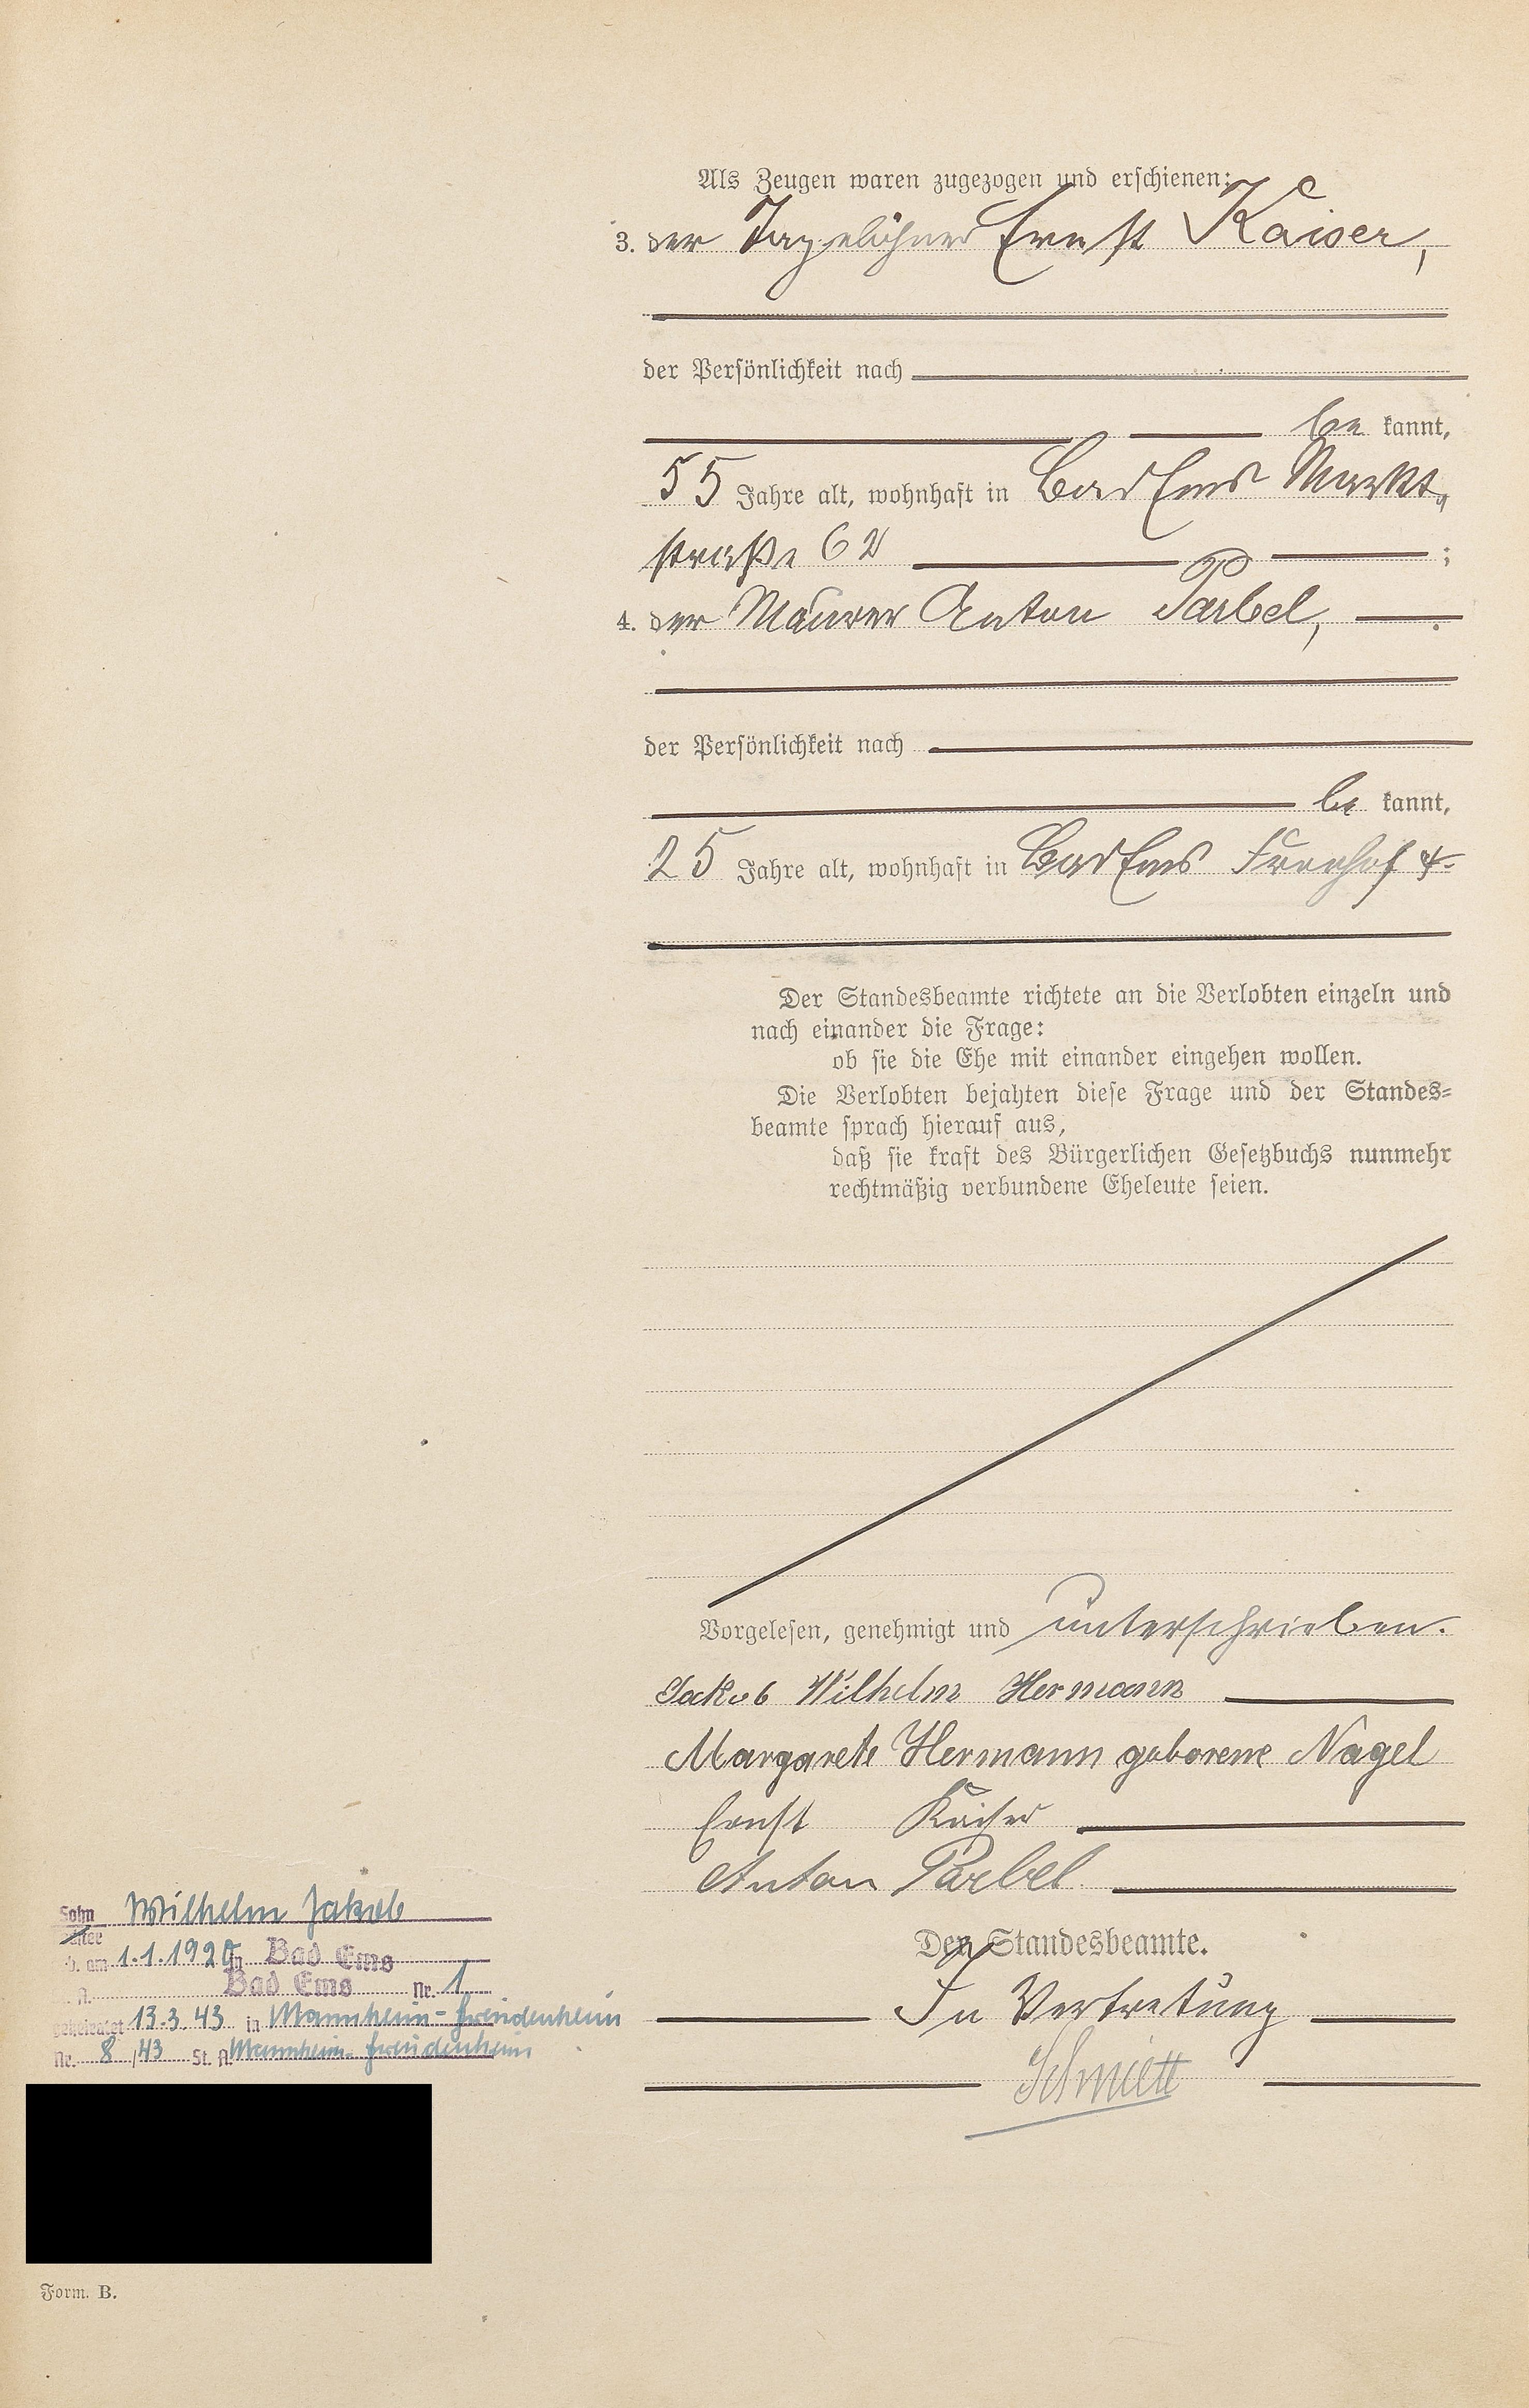 Als Zeugen waren zugezogen und erschienen:
3. der Tagelöhner Ernst Kaiser,
der Persönlichkeit nach
be kannt,
55 Jahre alt, wohnhaft in Bad Ems Markt-
straße 62
;
4. der Maurer Anton Parbel,
der Persönlichkeit nach
be kannt,
25 Jahre alt, wohnhaft in Bad Ems
Der Standesbeamte richtete an die Verlobten einzeln und
nach einander die Frage:
ob sie die Ehe mit einander eingehen wollen.
Die Verlobten bejahten diese Frage und der Standes-
beamte sprach hierauf aus,
daß sie kraft des Bürgerlichen Gesetzbuchs nunmehr
rechtmäßig verbundene Eheleute seien.
Vorgelesen, genehmigt und unterschrieben.
Jakob Wilhelm Hermann
Margarete Hermann geborene Nagel
Ernst Kaiser
Anton Parbel.
Der Standesbeamte.
In Vertretung
Schmitt
Sohn Wilhelm Jakob
am 1.1.1920 in Bad Ems
Bad Ems Nr. 1
geheiratet 13.3.43 in Mannheim-Freudenheim
Nr. 8/43 St. A. Mannheim-Freudenheim
Form. B.